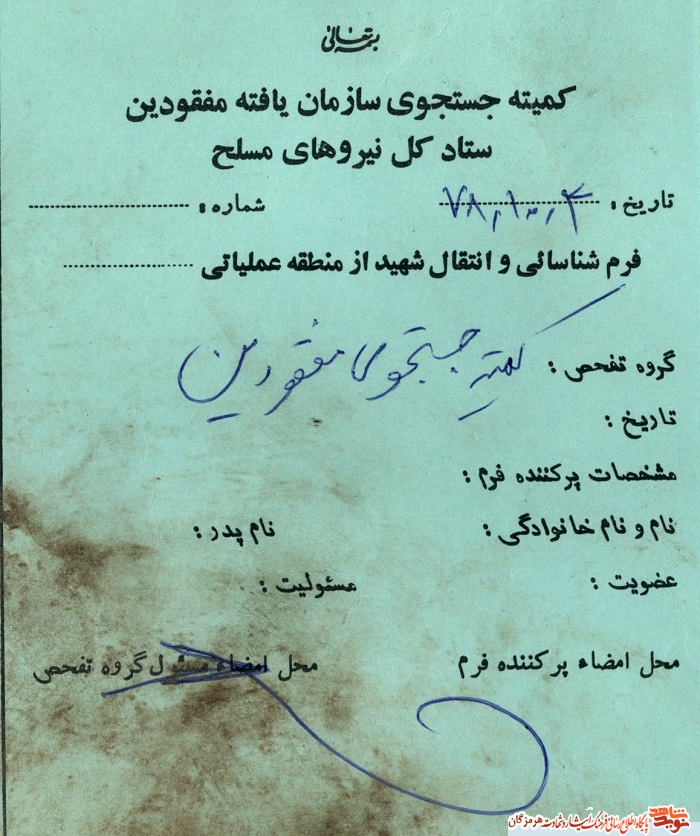 بسمه تعالی
کمیته جستجوی سازمان یافته مفقودین
ستاد کل نیروهای مسلح
تاریخ : ۷۸،۱۰،۴ شماره :
فرم شناسائی و انتقال شهید از منطقه عملیاتی
گروه تفحص : کمیته جستجوی مفقودین
تاریخ :
مشخصات پرکننده فرم :
نام و نام خانوادگی : نام پدر :
عضویت : مسئولیت :
محل امضاء پرکننده فرم محل امضاء مسئول گروه تفحص
نوید شاهد پایگاه اطلاع رسانی فرهنگ ایثار و شهادت هرمزگان